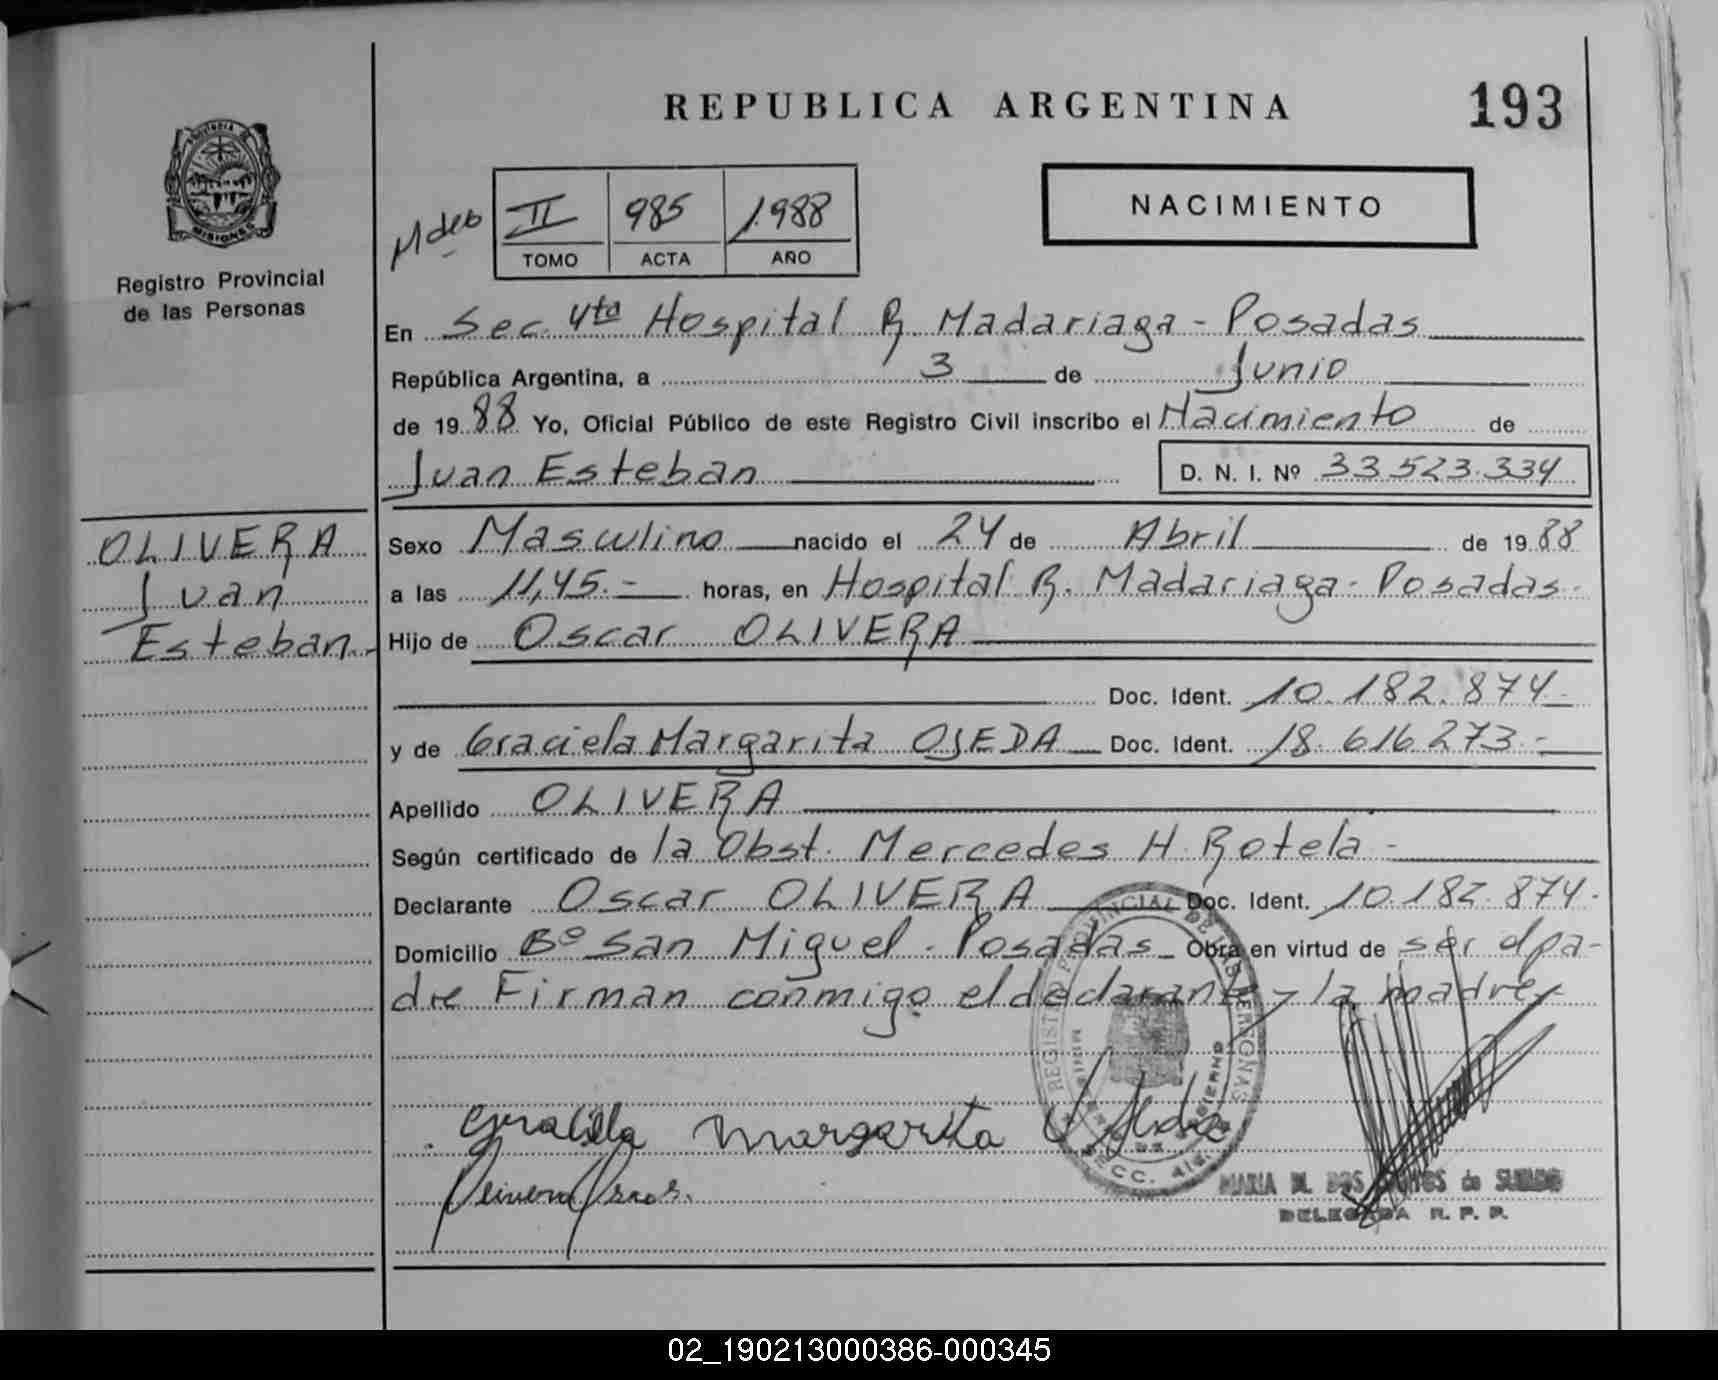 REPUBLICA ARGENTINA
193
PROVINCIA DE
MISIONES
Registro Provincial
de las Personas
II 985 1.988
TOMO ACTA AÑO
NACIMIENTO
En Sec. 4ta Hospital R. Madariaga - Posadas
República Argentina, a 3 de Junio
de 19 88 Yo, Oficial Público de este Registro Civil inscribo el Nacimiento de
Juan Esteban D. N. I. Nº 33.523.334
OLIVERA
Juan
Esteban.-
Sexo Masculino nacido el 24 de Abril de 19 88
a las 11,45.- horas, en Hospital R. Madariaga - Posadas-
Hijo de Oscar OLIVERA
Doc. Ident. 10.182.874-
y de Graciela Margarita OJEDA Doc. Ident. 18.616.273.-
Apellido OLIVERA
Según certificado de la Obst. Mercedes H. Rotela -
Declarante Oscar OLIVERA Doc. Ident. 10.182.874.
Domicilio Bº San Miguel - Posadas - Obra en virtud de ser el pa-
dre Firman conmigo el declarante y la madre
REGISTRO PROVINCIAL DE LAS PERSONAS
SECC. 4ta.
Graciela Margarita
Olivera Oscar.
MARIA
DELEGADA R. P. P.
02_190213000386-000345